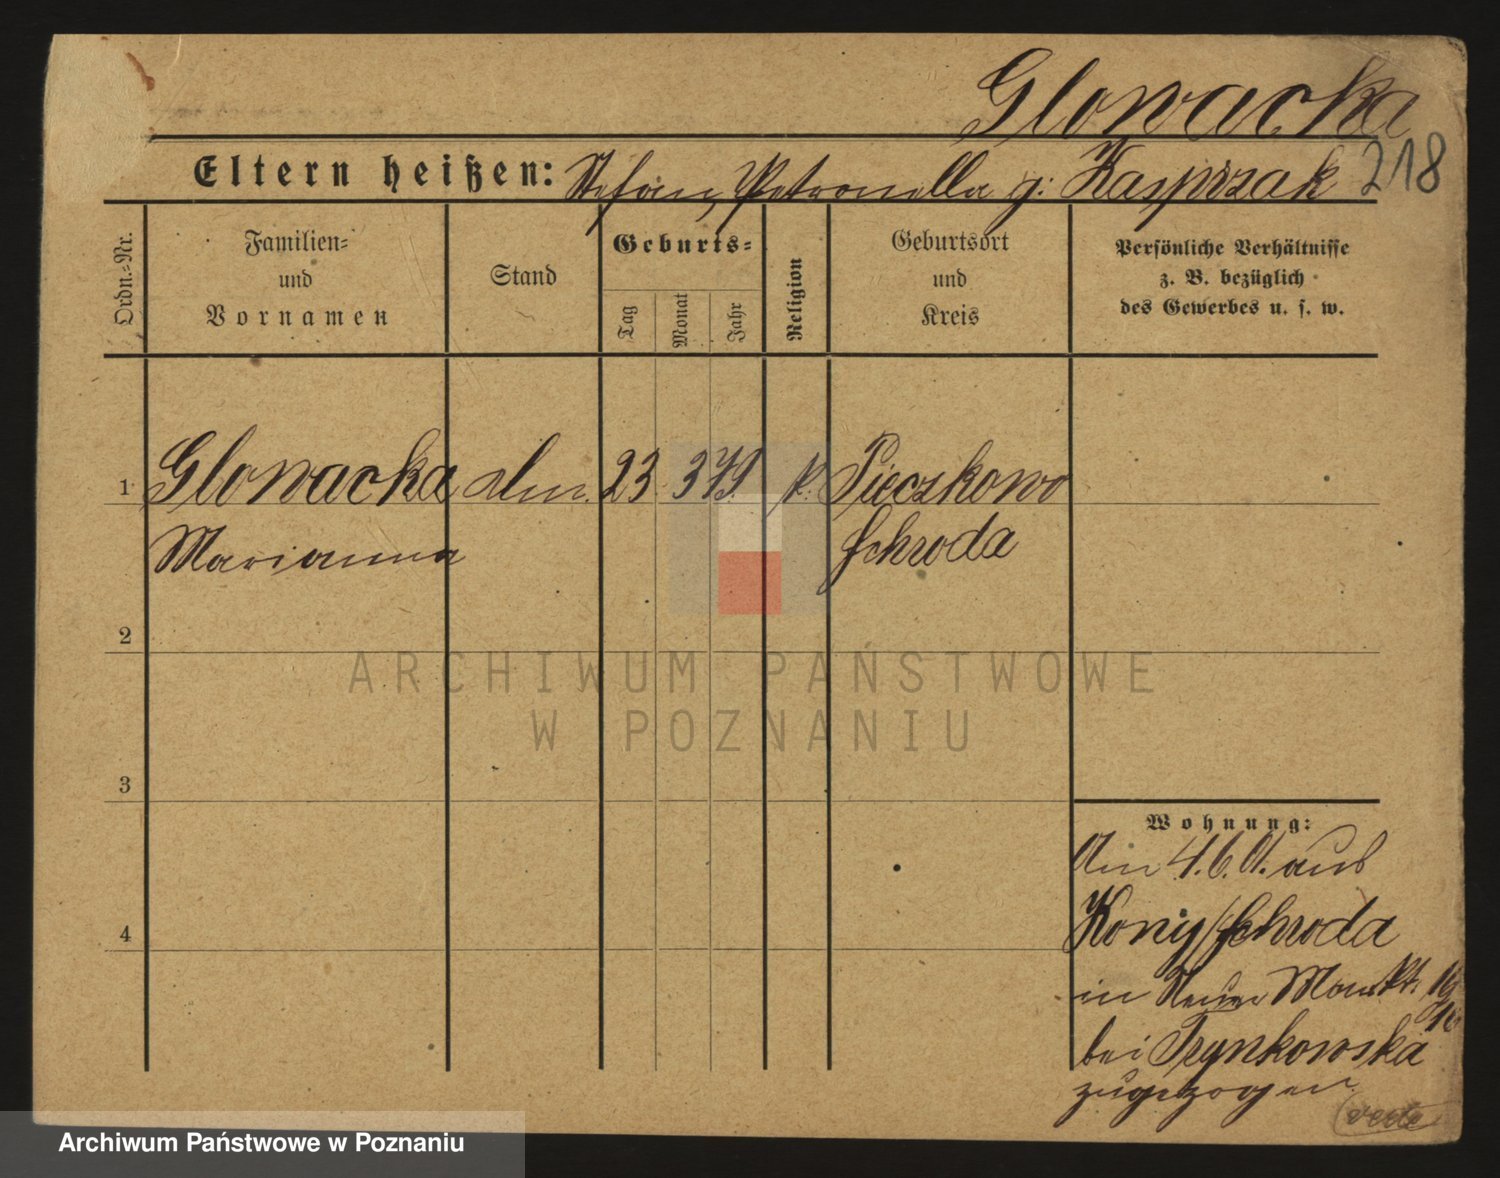 Glowacka
218
Eltern heißen: Stefan, Petronella g: Kasprzak
Ordn.-Nr.
Familien-
und
Vornamen
Stand
Geburts-
Tag
Monat
Jahr
Religion
Geburtsort
und
Kreis
Persönliche Verhältnisse
z. B. bezüglich
des Gewerbes u. s. w.
1 Glowacka 23 3 79. k. Pieczkowo
Marianna Schroda
2
3
4
Wohnung:
Am 4.6.01. aus
Kony/Schroda
in Neuer Markt.
bei Trynkowska
zugezogen
verte
ARCHIWUM PAŃSTWOWE
W POZNANIU
Archiwum Państwowe w Poznaniu